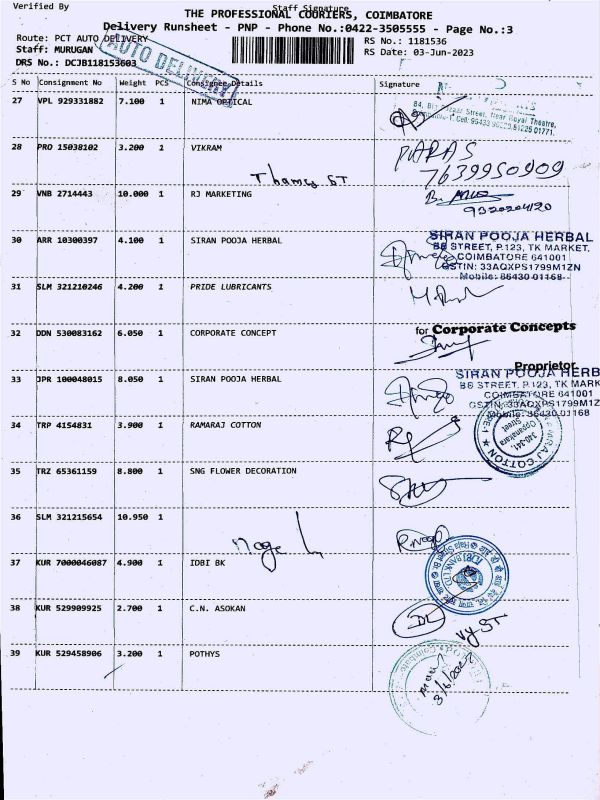 Verified By Staff Signature
THE PROFESSIONAL COORIERS, COIMBATORE
Delivery Runsheet - PNP - Phone No.:0422-3505555 - Page No.:3
Route: PCT AUTO DELIVERY
RS No.: 1181536
Staff: MURUGAN
RS Date: 03-Jun-2023
DRS No.: DCJB118153603
AUTO DELIVERY
S No Consignment No Weight PCS Consignee Details Signature
27 VPL 929331882 7.100 1 NIMA OPTICAL
Street, Near Royal Theatre,
28 PRO 15038102 3.200 1 VIKRAM
PARAS
7639950909
29 VNB 2714443 10.000 1 RJ MARKETING
30 ARR 10300397 4.100 1 SIRAN POOJA HERBAL
SIRAN POOJA HERBAL
STREET, P.123, TK MARKET,
COIMBATORE 641001
GSTIN: 33AQXPS1799M1ZN
Mobile: 86430 01168
31 SLM 321210246 4.200 1 PRIDE LUBRICANTS
32 DDN 530083162 6.050 1 CORPORATE CONCEPT
for Corporate Concepts
Proprietor
33 JPR 100048015 8.050 1 SIRAN POOJA HERBAL
SIRAN POOJA HERB
STREET, P.123, TK MARK
COIMBATORE 641001
GSTIN:33AQXPS1799M1Z
Mobile: 86430 01168
34 TRP 4154831 3.900 1 RAMARAJ COTTON
340-341,
Oppanakara
Street
35 TRZ 65361159 8.800 1 SNG FLOWER DECORATION
36 SLM 321215654 10.950 1
37 KUR 7000046087 4.900 1 IDBI BK
IDBI BANK LTD
38 KUR 529909925 2.700 1 C.N. ASOKAN
39 KUR 529458906 3.200 1 POTHYS
3/6/2023